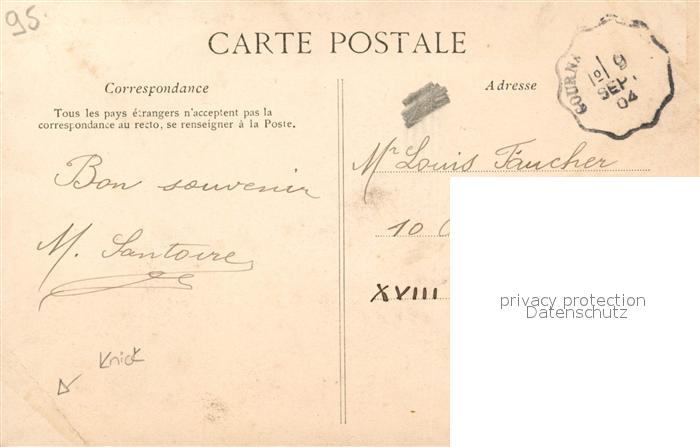 95.
CARTE POSTALE
Correspondance
Tous les pays étrangers n'acceptent pas la
correspondance au recto, se renseigner à la Poste.
Bon souvenir
M. Santoire
Knick
Adresse
GOURN
9
SEPT.
04
Mr Louis Faucher
10
XVIII
privacy protection
Datenschutz